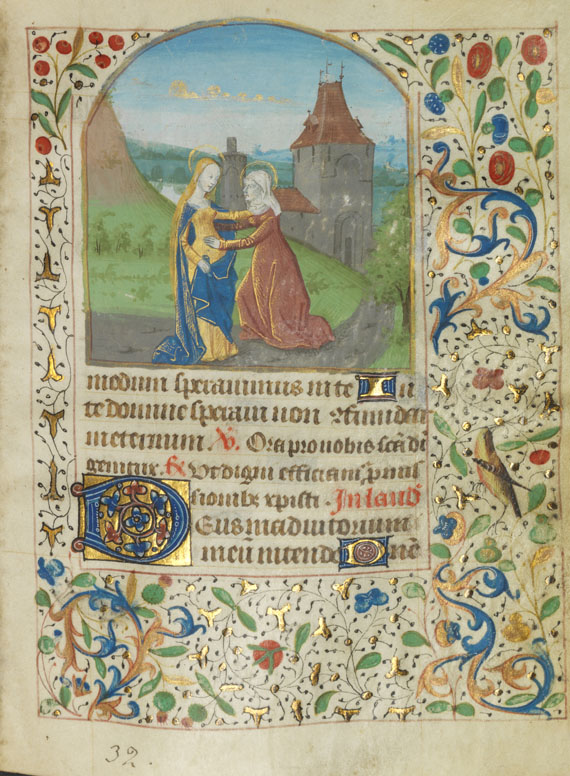 modum speravimus in te In
te domine speravi non confundar
in eternum V. Ora pro nobis scā dei
genitrix R Ut digni efficiam pmis
sionibꝫ xpisti. In laud
Deus in adiutorium
meū intende Dn̄e
32.